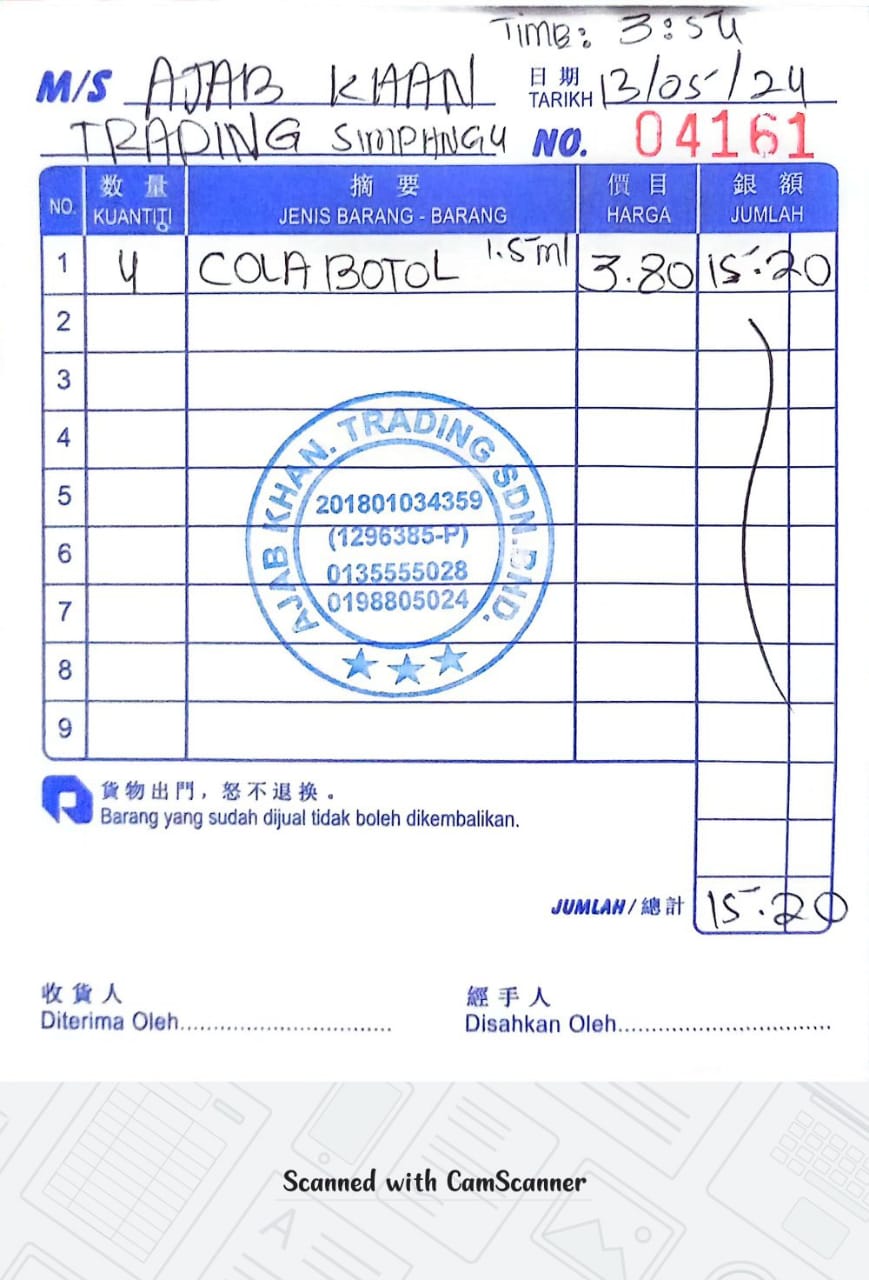 TIME: 3:54
M/S AJAB KHAN
日期
TARIKH 13/05/24
TRADING SIMPANG4 NO. 04161
NO. 数量 摘要 價目 銀額
KUANTITI JENIS BARANG - BARANG HARGA JUMLAH
1 4 COLA BOTOL 1.5ml 3.80 15.20
2
3
4
5
6
7
8
9
AJAB KHAN. TRADING SDN.BHD.
201801034359
(1296385-P)
0135555028
0198805024
貨物出門，怒不退換。
Barang yang sudah dijual tidak boleh dikembalikan.
JUMLAH/總計 15.20
收貨人 經手人
Diterima Oleh.............................. Disahkan Oleh..............................
Scanned with CamScanner